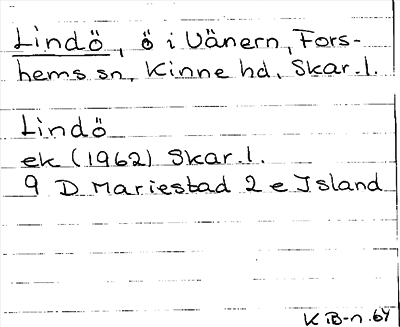 Lindö, ö i Vänern, Fors-
hems sn, Kinne hd, Skar.l.
Lindö
ek (1962) Skar.l.
9 D Mariestad 2 e Island
K iB-n.64